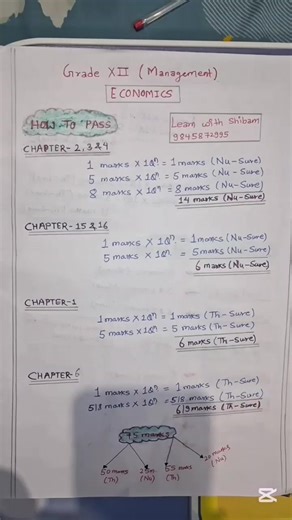 Grade XII (Management)
ECONOMICS
HOW TO PASS
Learn with Shibam
9845872995
CHAPTER-2,3&4
1 marks X 1Qⁿ = 1 marks (Nu-Sure)
5 marks X 1Qⁿ = 5 marks (Nu-Sure)
8 marks X 1Qⁿ = 8 marks (Nu-Sure)
14 marks (Nu-Sure)
CHAPTER-15&16
1 marks X 1Qⁿ. = 1 marks (Nu-Sure)
5 marks X 1Qⁿ. = 5 marks (Nu-Sure)
6 marks (Nu-Sure)
CHAPTER-1
1 marks X 1Qⁿ = 1 marks (Th-Sure)
5 marks X 1Qⁿ = 5 marks (Th-Sure)
6 marks (Th-Sure)
CHAPTER-6
1 marks X 1Qⁿ = 1 marks (Th-Sure)
5|8 marks X 1Qⁿ = 5|8 marks (Th-Sure)
6|9 marks (Th-Sure)
75 marks
50 marks (Th)
25m. (Nu)
55 marks (Th)
20 marks (Nu)
CapCut